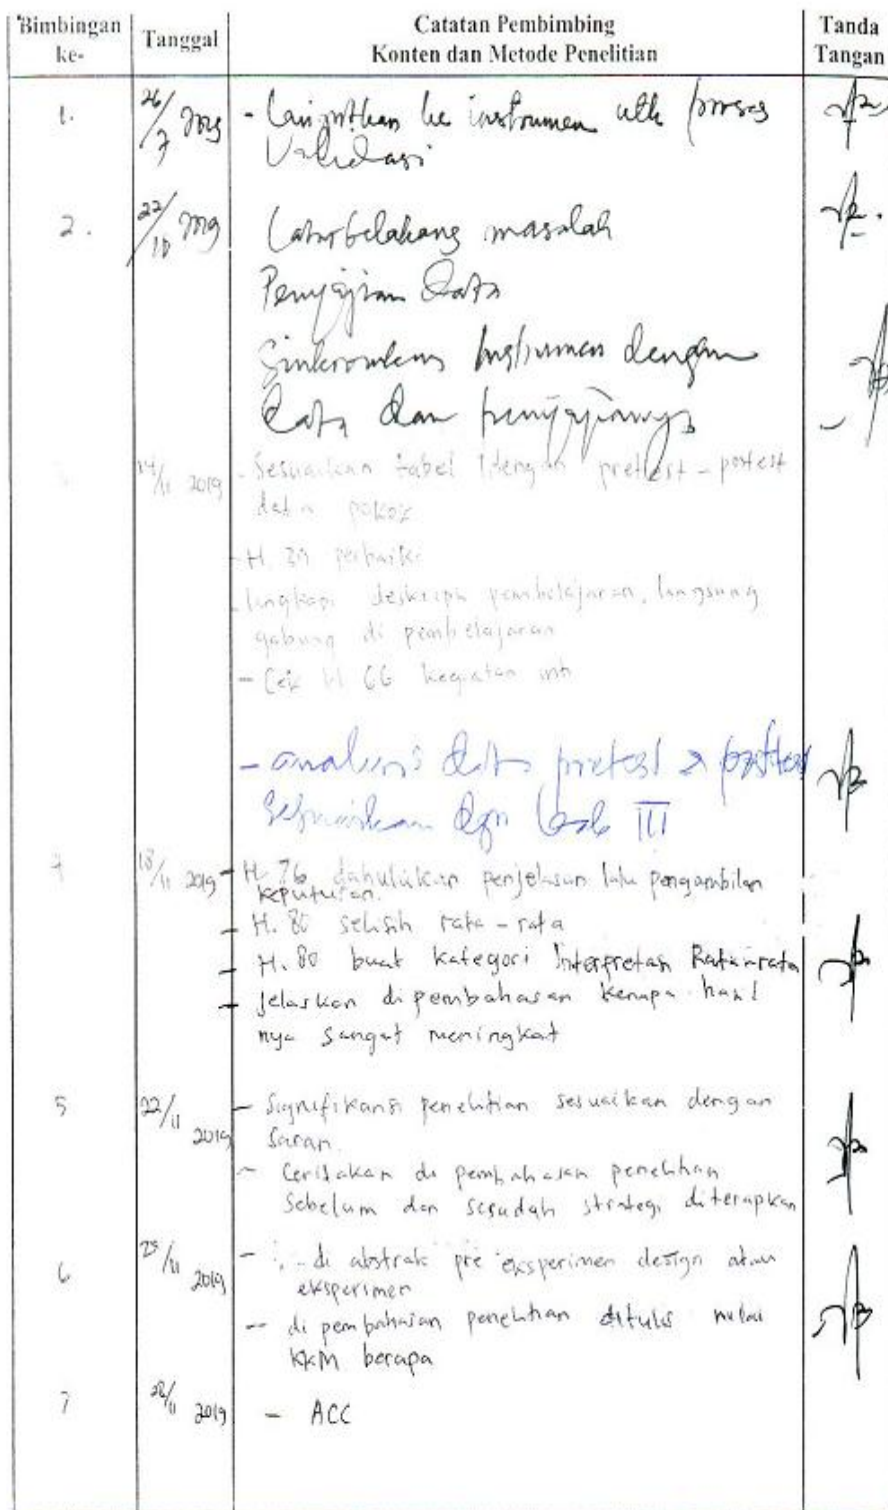 Bimbingan ke-
Tanggal
Catatan Pembimbing
Konten dan Metode Penelitian
Tanda Tangan
1. 26/7 2019 - Lanjutkan ke instrumen utk proses
Validasi
2. 22/10 2019 Latar belakang masalah
Penyajian Data
Sinkronkan Instrumen dengan
Data dan penyajiannya
14/11 2019 - Sesuaikan tabel dengan pretest - postest
data pokok
- H. 39 perbaiki
- lengkapi deskripsi pembelajaran, langsung
gabung di pembelajaran
- Cek H 66 kegiatan inti
- analisis data pretest & posttest
Sesuaikan dgn bab III
4 18/11 2019 - H. 76 dahulukan penjelasan lalu pengambilan
keputusan.
- H. 80 selisih rata - rata
- H. 80 buat kategori Interpretasi Rata-rata
- jelaskan di pembahasan kenapa hasil
nya sangat meningkat
5 22/11 2019 - Signifikansi penelitian sesuaikan dengan
saran.
- Ceritakan di pembahasan penelitian
Sebelum dan sesudah strategi diterapkan
6 25/11 2019 - di abstrak pre eksperimen design atau
eksperimen
- di pembahasan penelitian ditulis nilai
KKM berapa
7 28/11 2019 - ACC